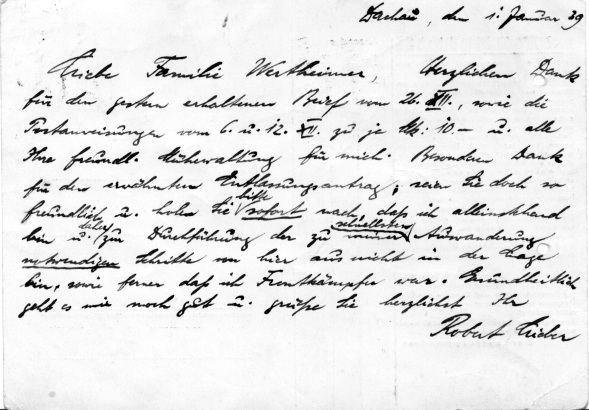 Dachau, den 1. Januar 39
Liebe Familie Wertheimer, Herzlichen Dank
für den gestern erhaltenen Brief vom 26. XII., sowie die
Postanweisungen vom 6. u. 12. XII. zu je Mk: 10.- u. alle
Ihre freundl. Mühewaltung für mich. Besonderen Dank
für den erwähnten Entlassungsantrag, seien Sie doch so
freundlich u. holen Sie bitte sofort nach, daß ich alleinstehend
bin u. daher zur Durchführung der zu schnellsten Auswanderung
notwendigen Schritte von hier aus nicht in der Lage
bin, sowie ferner daß ich Frontkämpfer war. Gesundheitlich
geht es mir noch gut u. grüße Sie herzlichst Ihr
Robert